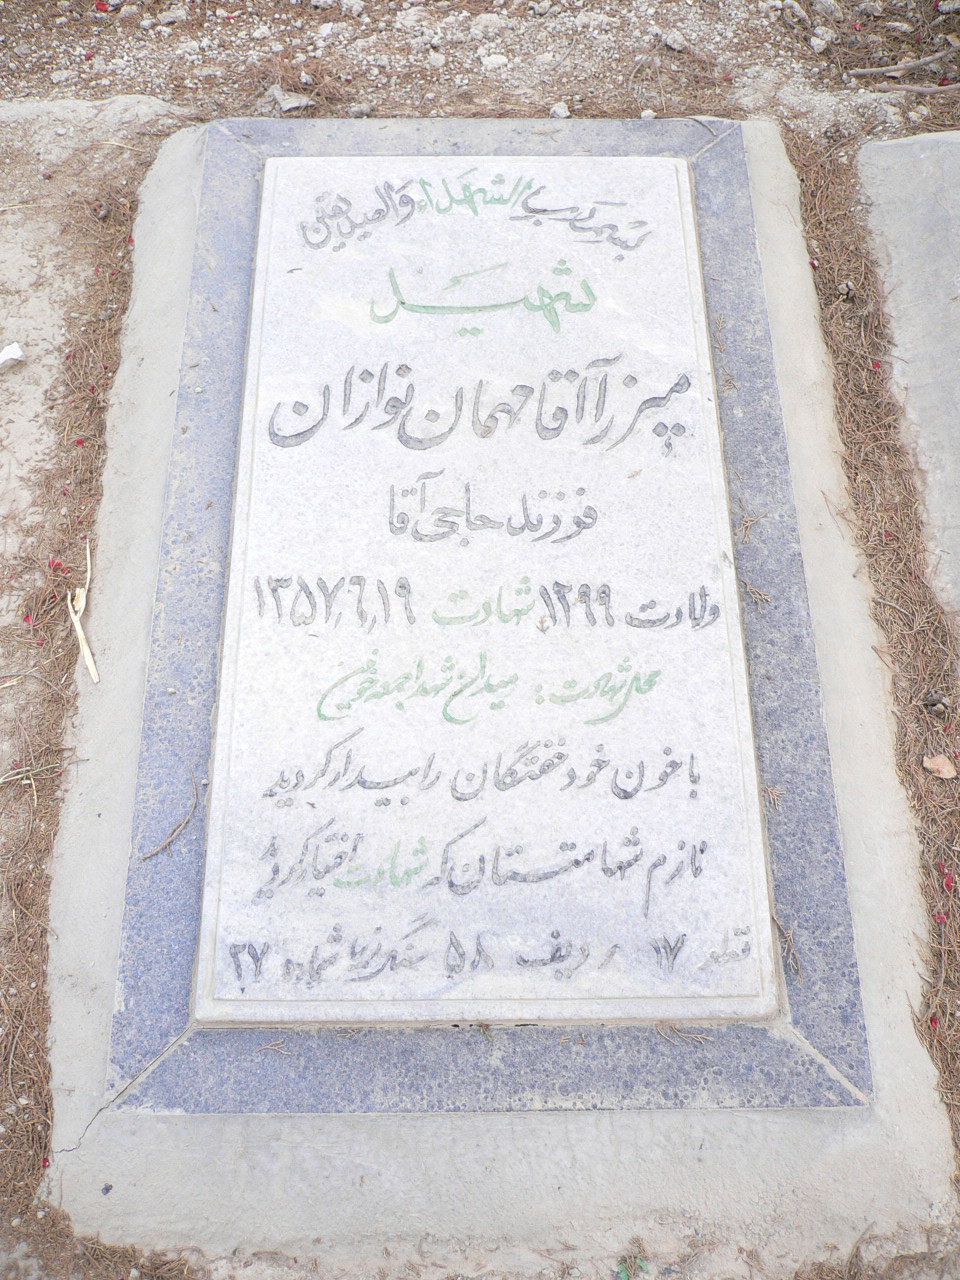 بسم رب الشهداء والصدیقین
شهید
میرزاآقامهمان نوازان
فرزند حاجی آقا
ولادت ۱۲۹۹ شهادت ۱۳۵۷،۶،۱۹
محل شهادت : میدان شهدا جمعه خونین
با خون خود خفتگان را بیدار کردید
نازم شهامتتان که شهادت اختیار کردید
قطعه ۱۷ ردیف ۵۸ سنگ زیبا شماره ۲۷